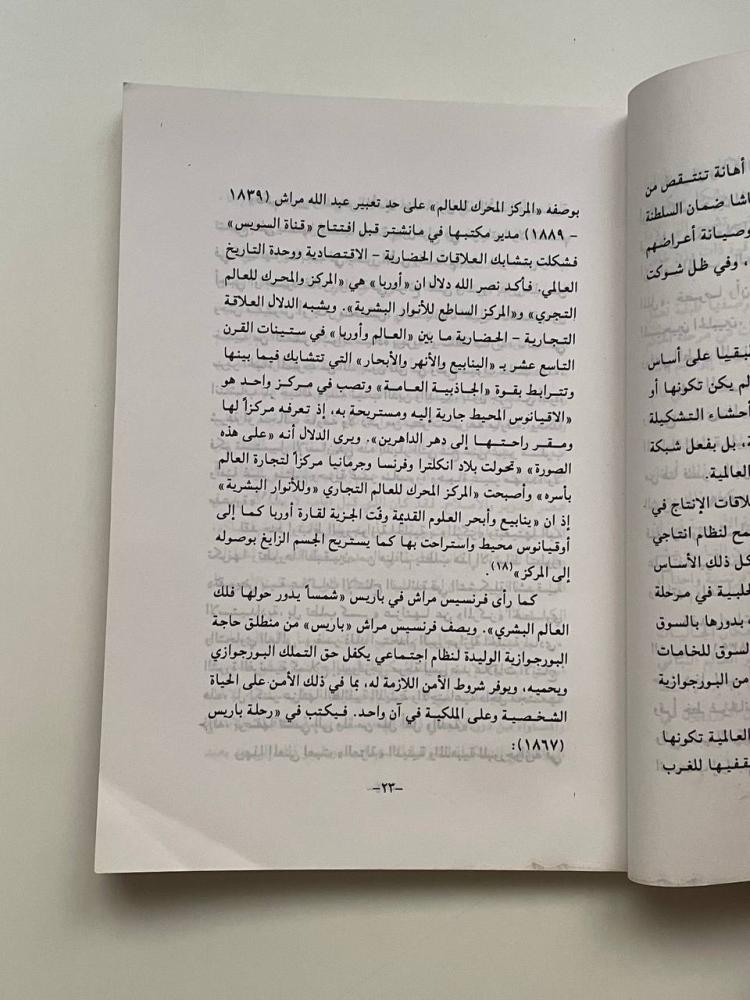 بوصفه «المركز المحرك للعالم» على حد تعبير عبد الله مراش (١٨٣٩
– ١٨٨٩) مدير مكتبها في مانشتر قبل افتتاح «قناة السويس»
فشكلت بتشابك العلاقات الحضارية – الاقتصادية ووحدة التاريخ
العالمي. فأكد نصر الله دلال ان «أوربا» هي «المركز والمحرك للعالم
التجري» و«المركز الساطع للأنوار البشرية». ويشبه الدلال العلاقة
التجارية – الحضارية ما بين «العالم وأوربا» في ستينات القرن
التاسع عشر بـ «الينابيع والأنهر والأبحار» التي تتشابك فيما بينها
وتترابط بقوة «الجاذبية العامة» وتصب في مركز واحد هو
«الاقيانوس المحيط جارية إليه ومستريحة به، إذ تعرفه مركزاً لها
ومقر راحتها إلى دهر الداهرين». ويرى الدلال أنه «على هذه
الصورة» «تحولت بلاد انكلترا وفرنسا وجرمانيا مركزاً لتجارة العالم
بأسره» وأصبحت «المركز المحرك للعالم التجاري «وللأنوار البشرية»
إذ ان «ينابيع وأبحر العلوم القديمة وفّت الجزية لقارة أوربا كما إلى
أوقيانوس محيط واستراحت بها كما يستريح الجسم الزايغ بوصوله
إلى المركز»(١٨).
كما رأى فرنسيس مراش في باريس «شمساً يدور حولها فلك
العالم البشري». ويصف فرنسيس مراش «باريس» من منطلق حاجة
البورجوازية الوليدة لنظام اجتماعي يكفل حق التملك البورجوازي
ويحميه، ويوفر شروط الأمن اللازمة له، بما في ذلك الأمن على الحياة
الشخصية وعلى الملكية في آن واحد. فيكتب في «رحلة باريس
(١٨٦٧):
–٢٣–
أهانة تنتقص من
اشا ضمان السلطنة
وصيانة أعراضهم
، وفي ظل شوكت
طبقيا على أساس
لم يكن تكونها أو
أحشاء التشكيلة
ة، بل بفعل شبكة
العالمية.
لاقات الإنتاج في
مح لنظام انتاجي
كل ذلك الأساس
لحلبية في مرحلة
ه بدورها بالسوق
لسوق للخامات
من البورجوازية
العالمية تكونها
ثقفيها للغرب